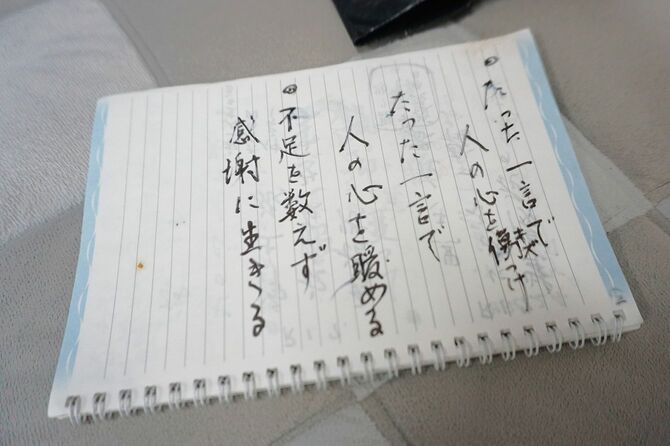 たった一言で
人の心を傷つけ
たった一言で
人の心を暖める
不足を数えず
感謝に生きる